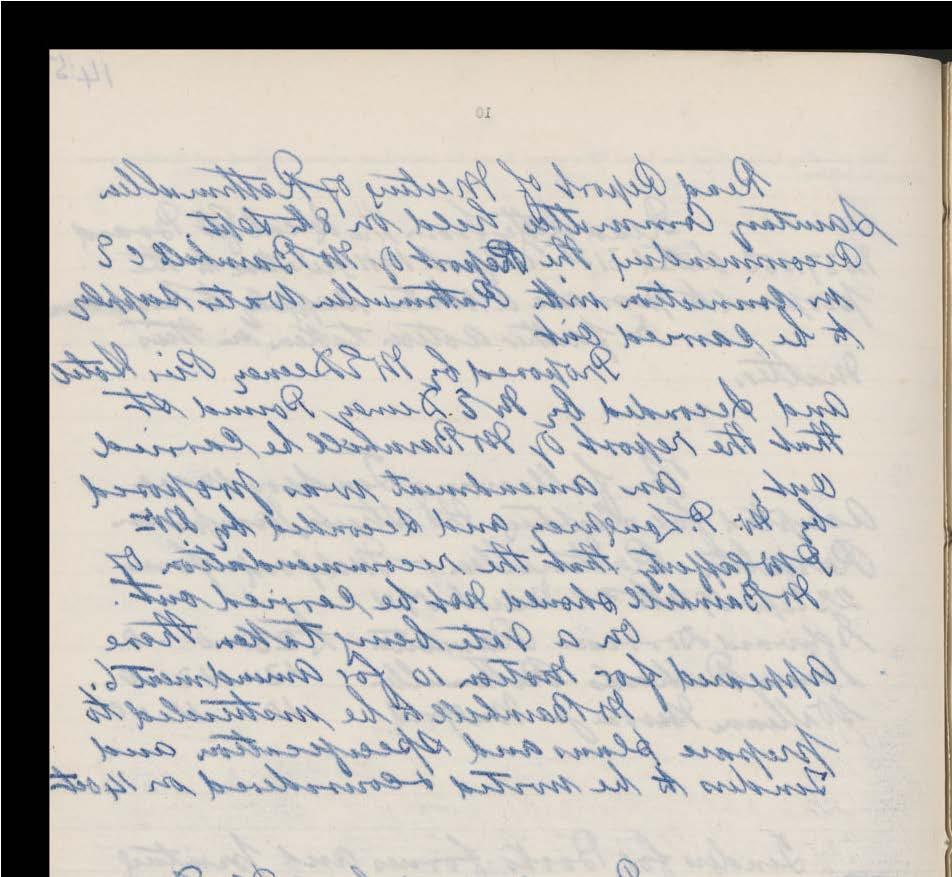 145
10
Read Report of Meeting of Rathmullen
Sanitary Committee held on 8th Sept
Recommending the Report of Mr Barnhill C E
in Connection with Rathmullen Water supply
to be Carried out
Proposed by Mr E Deeney Pier Hotel
and Seconded by Mr E Deeney Pound St
that the report of Mr Barnhill be Carried
out. An amendment was proposed
by Mr P Loughrey and Seconded by Mr
that the recommendation of
Mr Barnhill should not be Carried out.
On a Vote being taken there
appeared for Motion 10 for amendment 6.
Mr Barnhill to be instructed to
prepare plans and Specification and
Tenders to be invited on 4 Oct
Tender for Books forms and printing